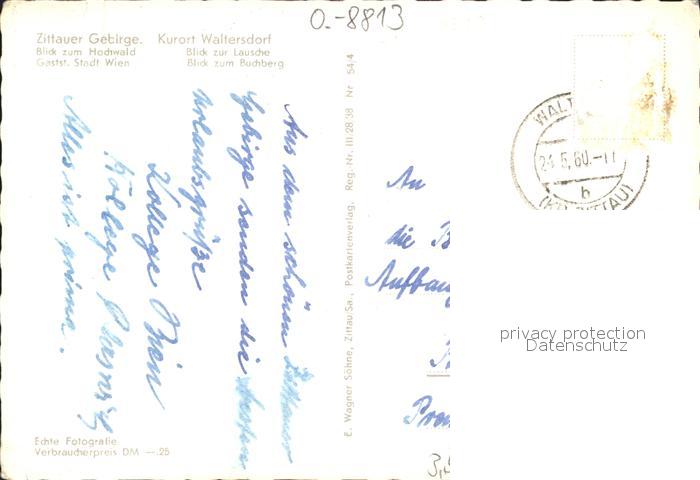 O.-8813
Zittauer Gebirge. Kurort Waltersdorf
Blick zum Hochwald Blick zur Lausche
Gastst. Stadt Wien Blick zum Buchberg
Aus dem schönen Zittauer
Gebirge senden die besten
Urlaubsgrüße
Kollege
Kollege
Alles ist prima.
Echte Fotografie
Verbraucherpreis DM —.25
E. Wagner Söhne, Zittau/Sa., Postkartenverlag. Reg. Nr. III/28/38 Nr 54/4
WALT
24.5.60.-11
b
(KR. ZITTAU)
An
die B
Aufbau
privacy protection
Datenschutz